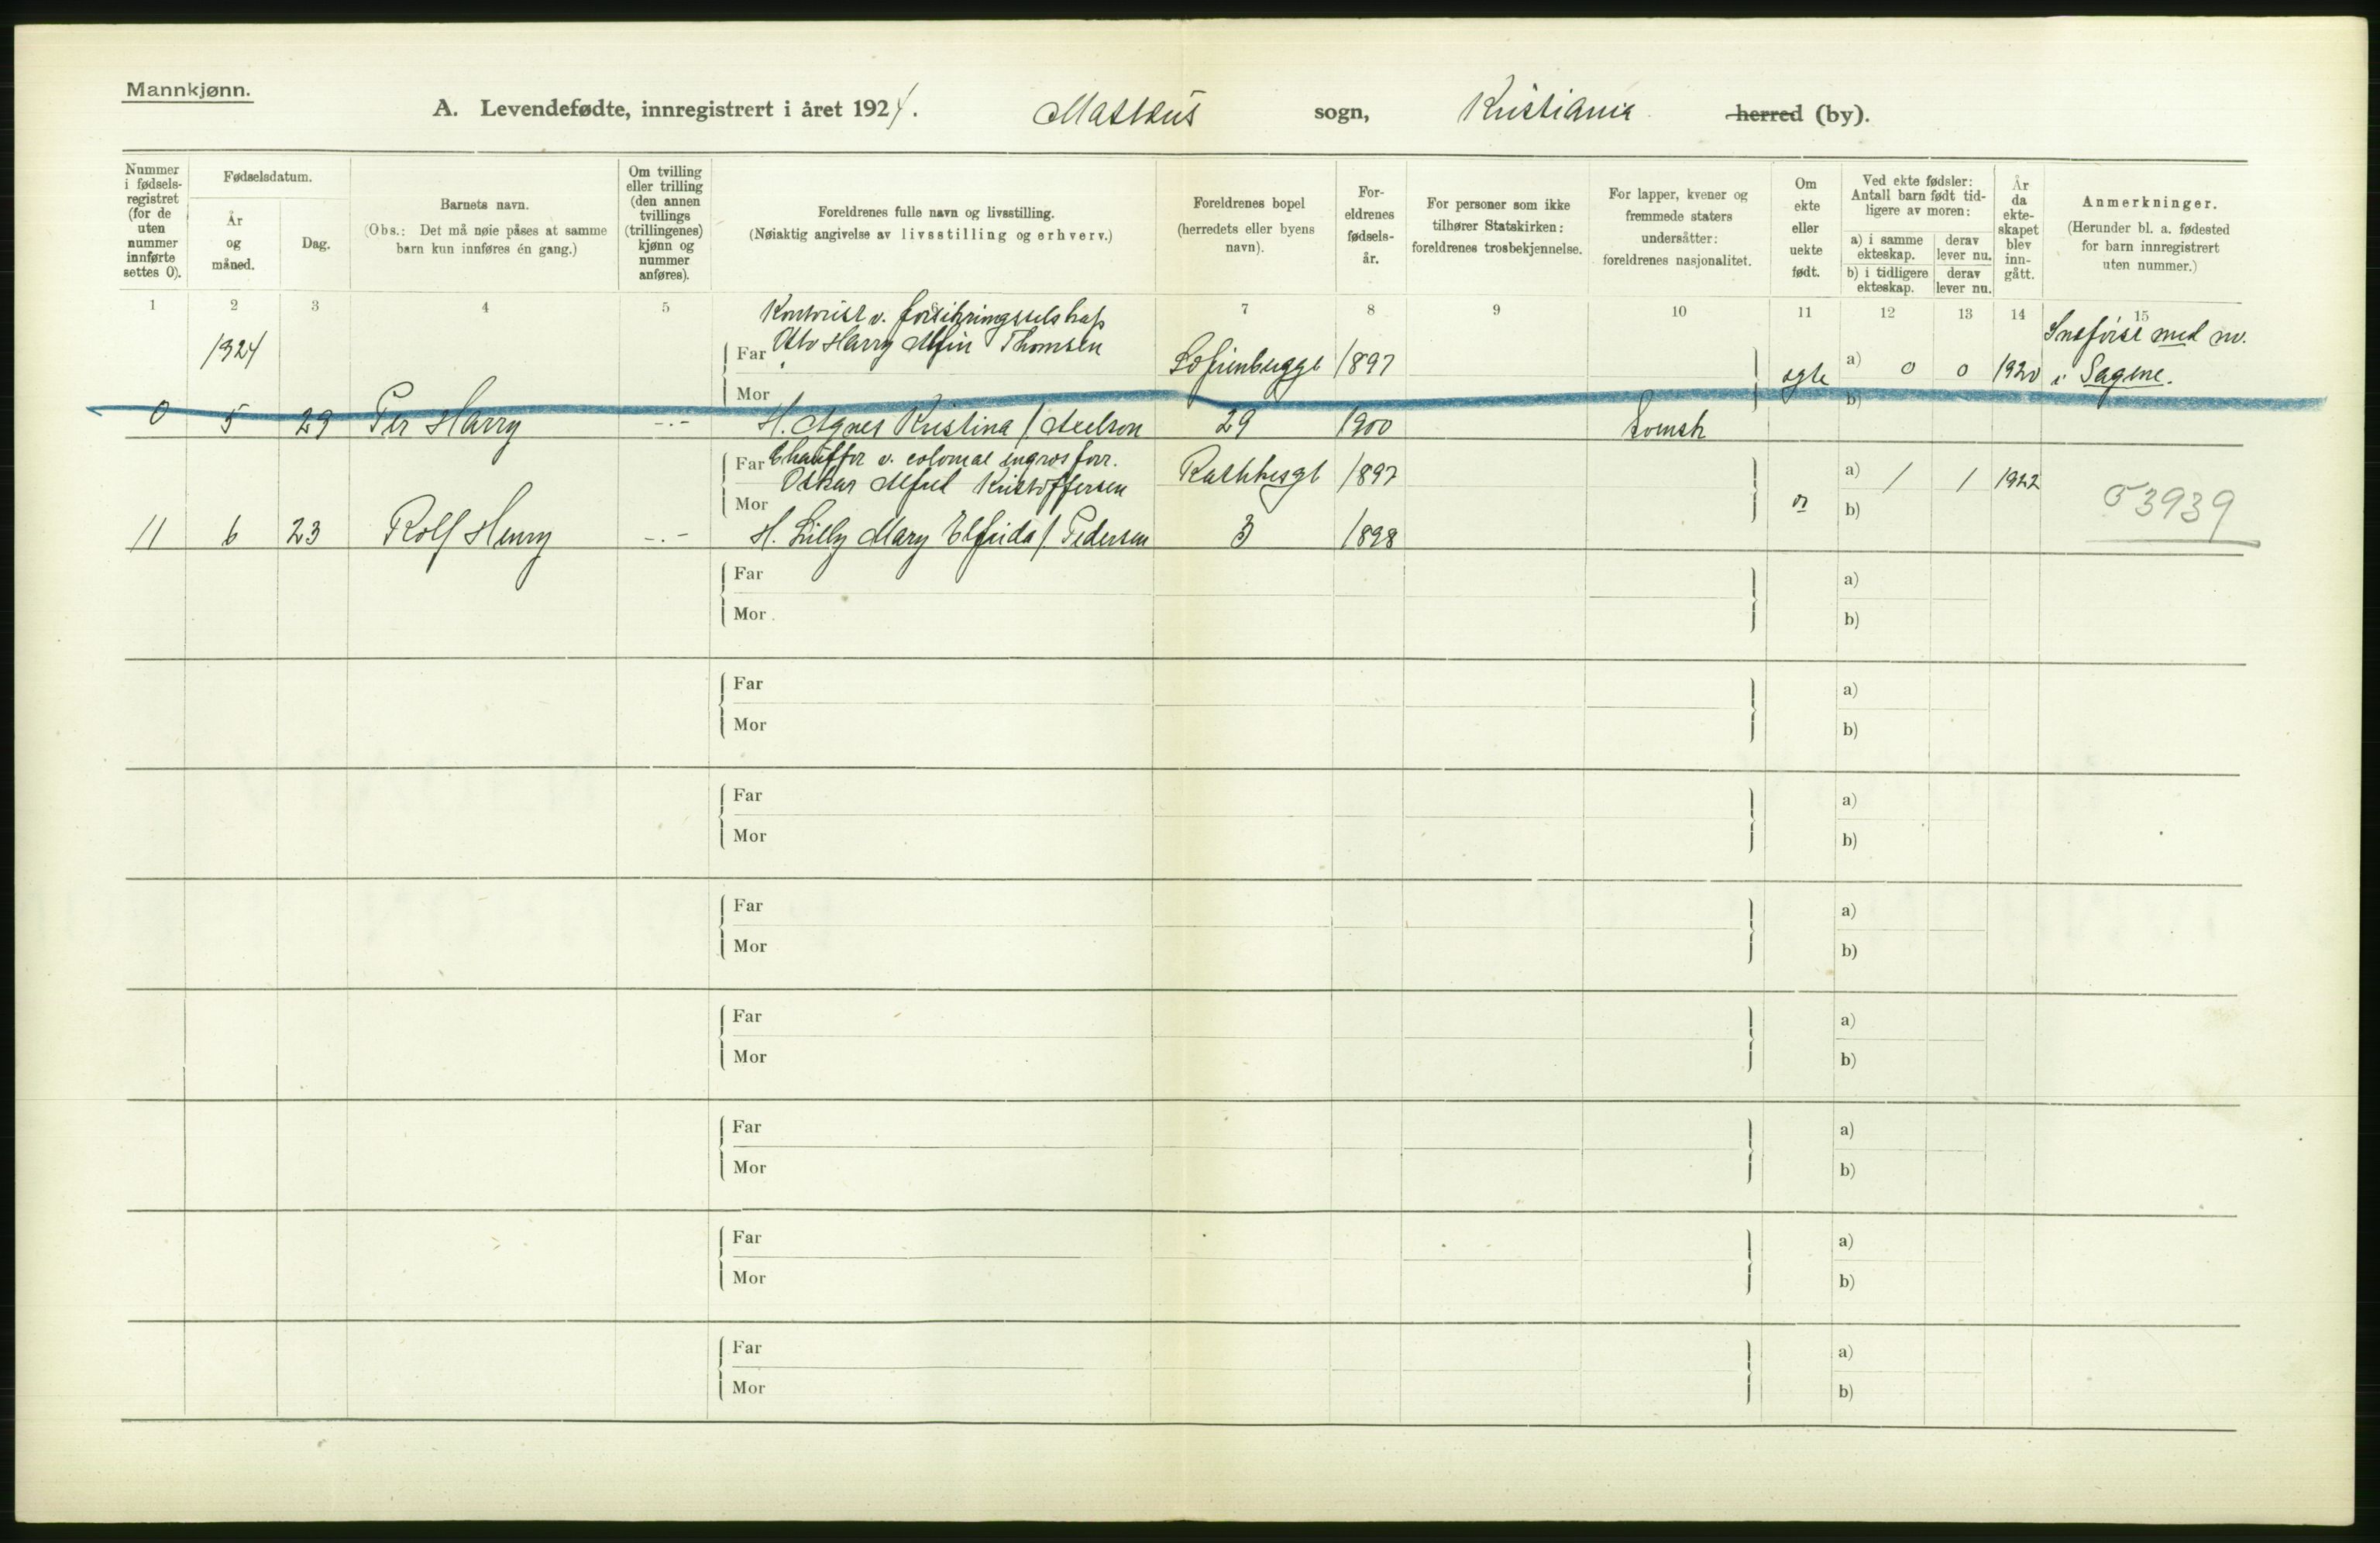 Mannkjønn.
A. Levendefødte, innregistrert i året 1924. Matteus sogn, Kristiania herred (by).
Nummer i fødsels-registret (for de uten nummer innførte settes 0).
Fødselsdatum.
År og måned.
Dag.
Barnets navn.
(Obs.: Det må nøie påses at samme barn kun innføres én gang.)
Om tvilling eller trilling (den annen tvillings (trillingenes) kjønn og nummer anføres).
Foreldrenes fulle navn og livsstilling.
(Nøiaktig angivelse av livsstilling og erhverv.)
Foreldrenes bopel (herredets eller byens navn).
For-eldrenes fødsels-år.
For personer som ikke tilhører Statskirken: foreldrenes trosbekjennelse.
For lapper, kvener og fremmede staters undersåtter: foreldrenes nasjonalitet.
Om ekte eller uekte født.
Ved ekte fødsler: Antall barn født tid-ligere av moren:
a) i samme ekteskap. derav lever nu.
b) i tidligere ekteskap. derav lever nu.
År da ekte-skapet blev inn-gått.
Anmerkninger.
(Herunder bl. a. fødested for barn innregistrert uten nummer.)
1 2 3 4 5 7 8 9 10 11 12 13 14 15
Kontorist v. forsikringsselskap
1924 Far Otto Harry Thomsen Sofienberggt 1897 egte a) 0 0 1920 med nr. i Sagene.
Mor b)
0 5 29 Per Harry -.- H. Agnes Kristina f. Axelson 29 1900 Svensk
Far Chauffør v. colonial engros forr.
Oskar Alfred Kristoffersen Rathkesgt 1897 a) 1 1 1922 53939
Mor b)
11 6 23 Rolf Henry -.- H. Lilly Mary Elfrida f. Pedersen 3 1898
Far a)
Mor b)
Far a)
Mor b)
Far a)
Mor b)
Far a)
Mor b)
Far a)
Mor b)
Far a)
Mor b)
Far a)
Mor b)
Far a)
Mor b)